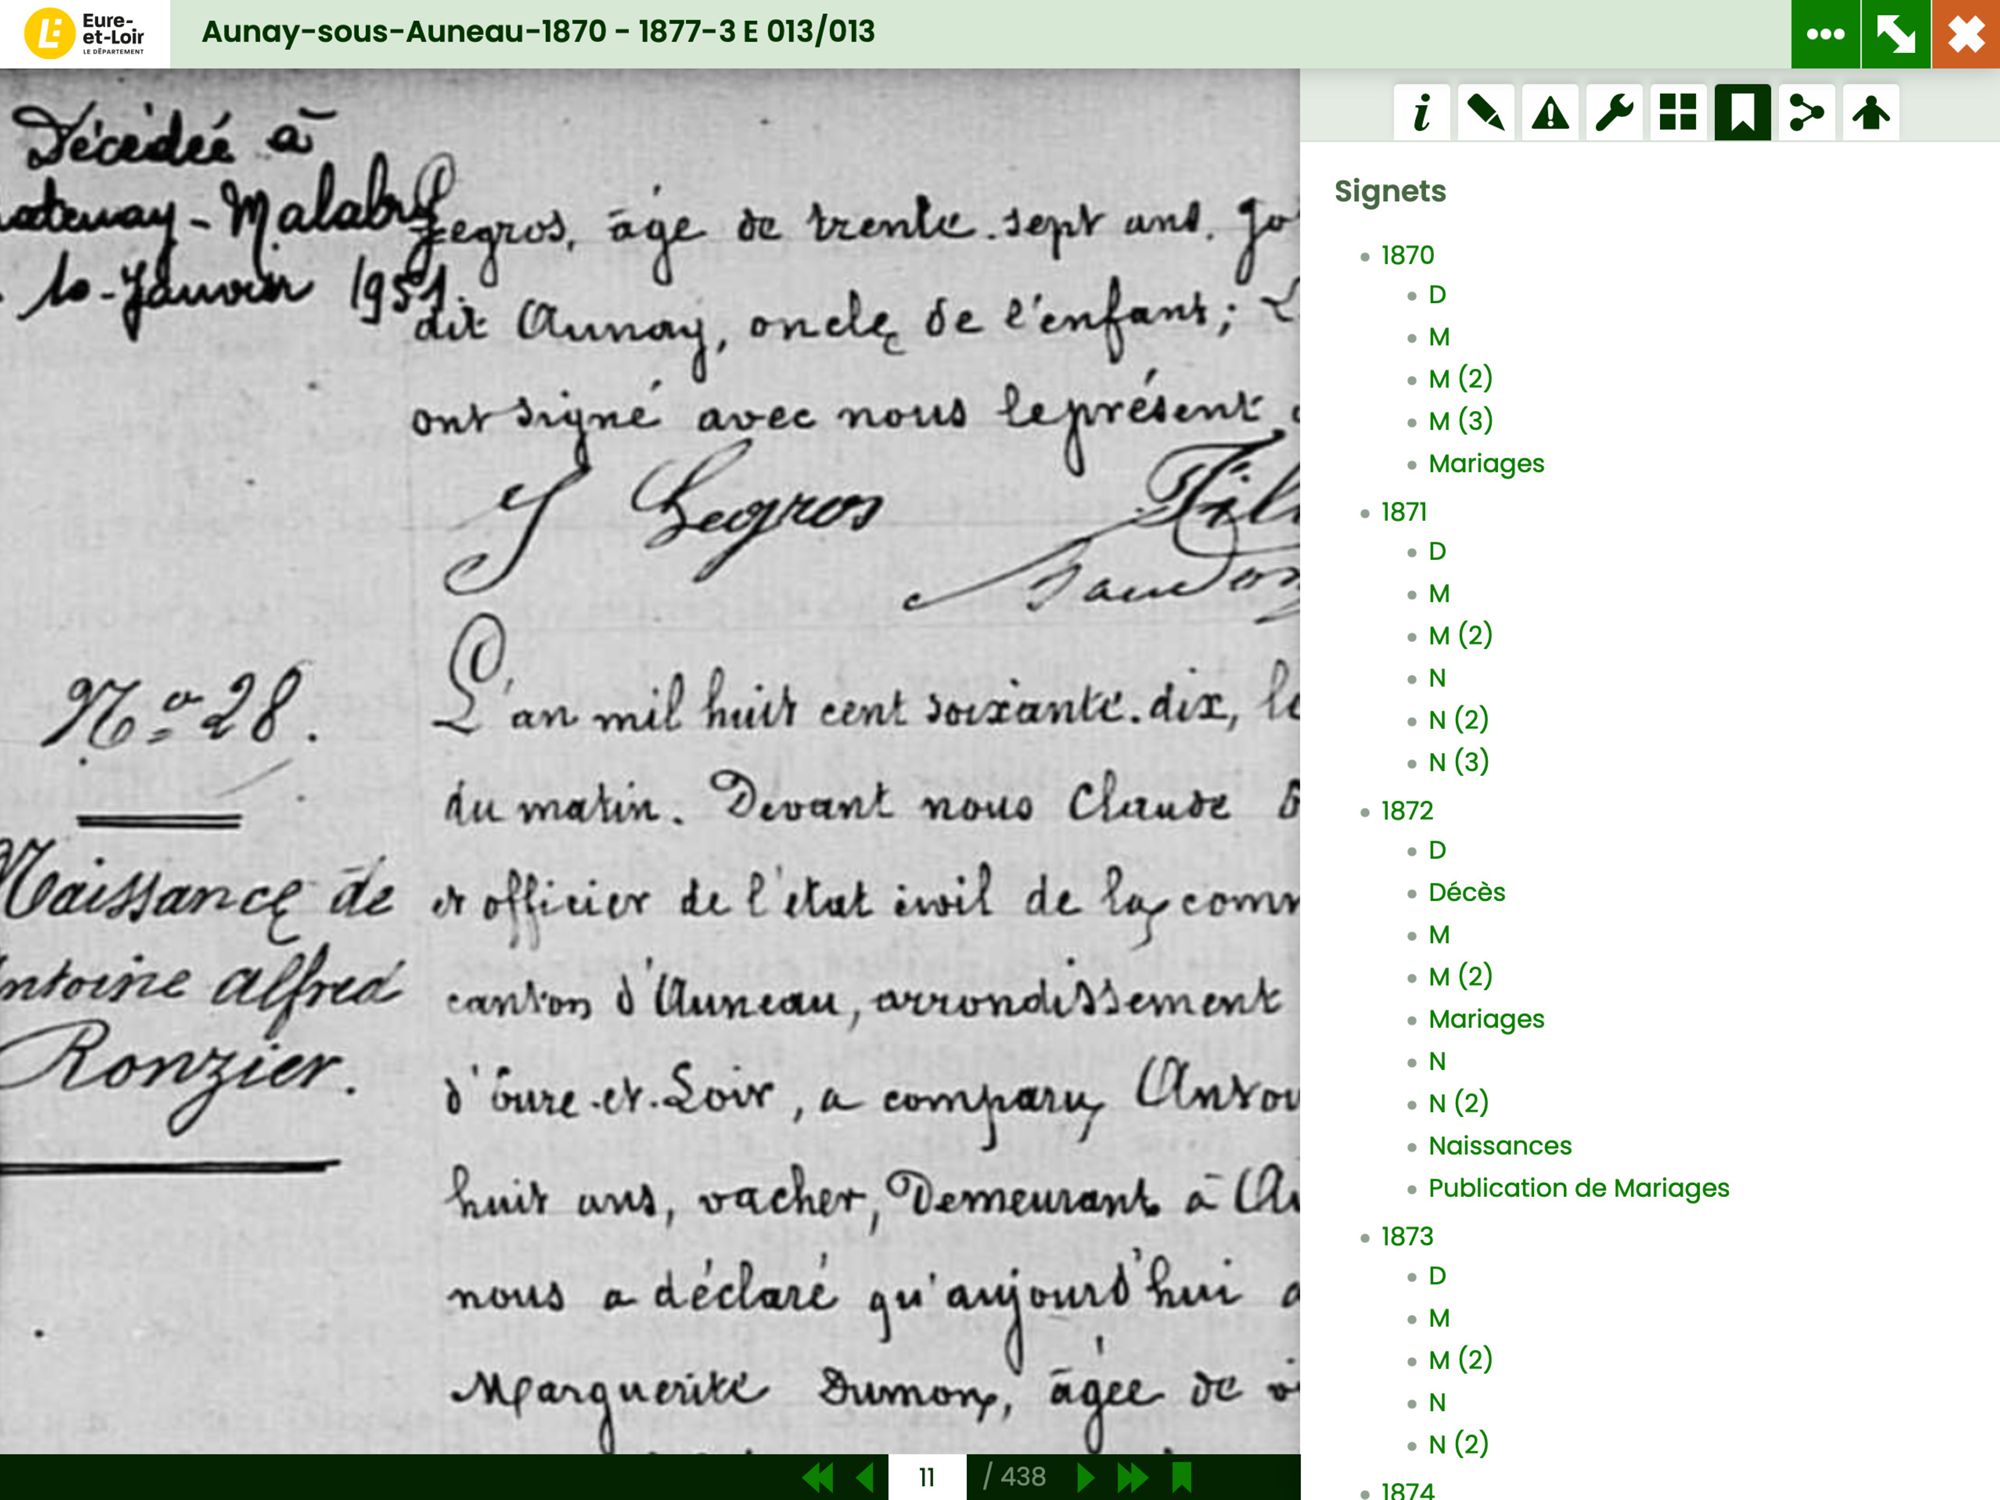 Eure-
et-Loir
LE DÉPARTEMENT
Aunay-sous-Auneau-1870 - 1877-3 E 013/013
Décédée à
atenay-Malabry
10 Janvier 1951.
Legros, âgé de trente-sept ans. Jo
dit Aunay, oncle de l'enfant; L
ont signé avec nous le présent
J Legros
Nº 28.
Naissance de
ntoine alfred
Ronzier.
L'an mil huit cent soixante-dix, le
du matin. Devant nous Claude B
et officier de l'état civil de la comm
canton d'Auneau, arrondissement
d'Eure-et-Loir, a comparu Antoi
huit ans, vacher, Demeurant à Au
nous a déclaré qu'aujourd'hui a
Marguerite Dumon, âgée de vi
11 / 438
Signets
1870
D
M
M (2)
M (3)
Mariages
1871
D
M
M (2)
N
N (2)
N (3)
1872
D
Décès
M
M (2)
Mariages
N
N (2)
Naissances
Publication de Mariages
1873
D
M
M (2)
N
N (2)
1874